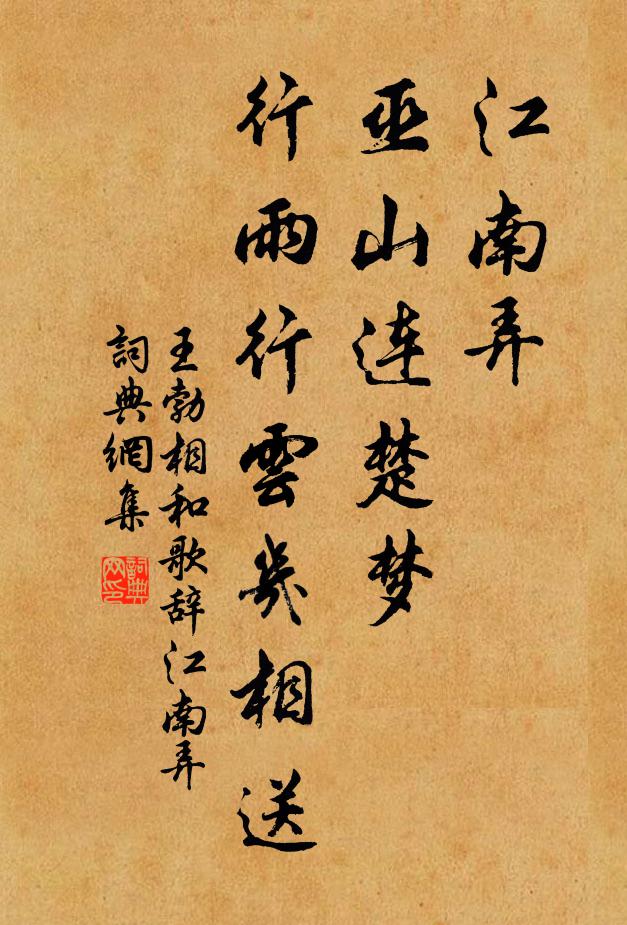 江南弄
巫山连楚梦
行雨行雲幾相送
王勃相和歌辞江南弄
詞典網集
詞典
网印